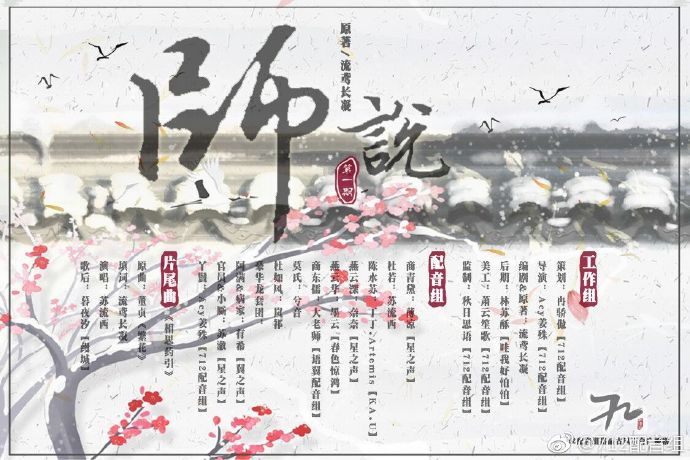 師說
第一期
原著/流鸢长凝
工作组
策划：冉骄傲【712配音组】
导演：Aey姜殊【712配音组】
编剧&原著：流鸢长凝
后期：林苏酥【哇我好怕怕】
美工：萧云笙歌【712配音组】
监制：秋日思语【712配音组】
配音组
商青黛：薄凉【星之声】
杜若：苏流西
陈水苏：丁一Artemis【KA.U】
燕云深：奈奈【星之声】
燕灵华：墨云【春色惊鸿】
商东儒：大老师【语翼配音组】
莫氏：兮音
杜如风：岚祁
豪华龙套团：
阿满&病家：有希【翼之声】
官员&小厮：苏澈【星之声】
丫鬟：Aey姜殊【712配音组】
片尾曲
《相思药引》
原曲：董贞《繁花》
填词：流鸢长凝
演唱：苏流西
歌后：暮夜汐【剑城】